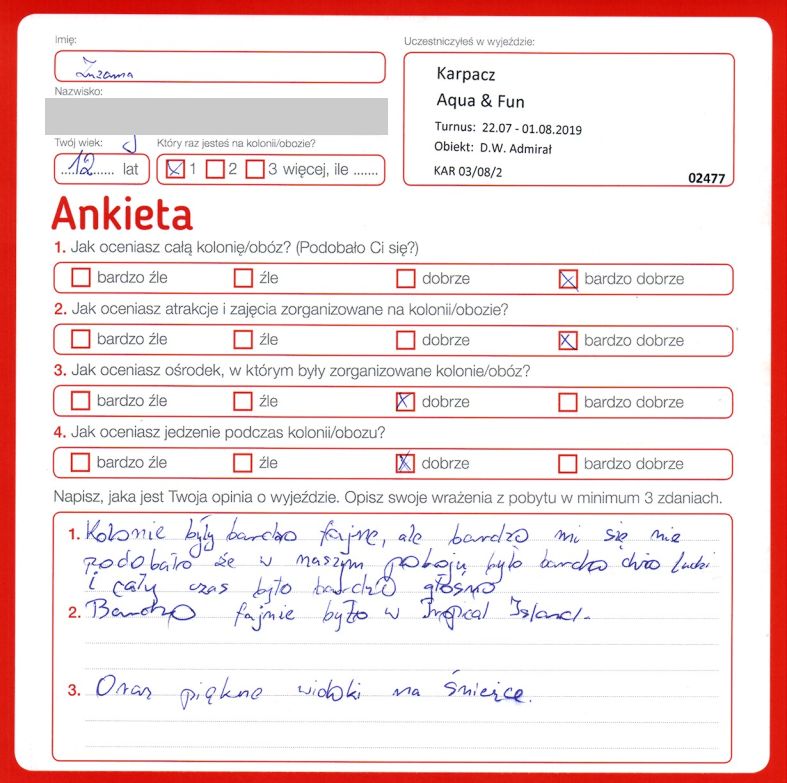 Imię:
Zuzanna
Nazwisko:
Twój wiek:
12 lat
Który raz jesteś na kolonii/obozie?
1 2 3 więcej, ile .......
Uczestniczyłeś w wyjeździe:
Karpacz
Aqua & Fun
Turnus: 22.07 - 01.08.2019
Obiekt: D.W. Admirał
KAR 03/08/2
02477
Ankieta
1. Jak oceniasz całą kolonię/obóz? (Podobało Ci się?)
bardzo źle źle dobrze bardzo dobrze
2. Jak oceniasz atrakcje i zajęcia zorganizowane na kolonii/obozie?
bardzo źle źle dobrze bardzo dobrze
3. Jak oceniasz ośrodek, w którym były zorganizowane kolonie/obóz?
bardzo źle źle dobrze bardzo dobrze
4. Jak oceniasz jedzenie podczas kolonii/obozu?
bardzo źle źle dobrze bardzo dobrze
Napisz, jaka jest Twoja opinia o wyjeździe. Opisz swoje wrażenia z pobytu w minimum 3 zdaniach.
1. Kolonie były bardzo fajne, ale bardzo mi się nie
podobało że w naszym pokoju było bardzo dużo ludzi
i cały czas było bardzo głosno
2. Bardzo fajnie było w Tropical Island.
3. Oraz piękne widoki na Śnieżce.